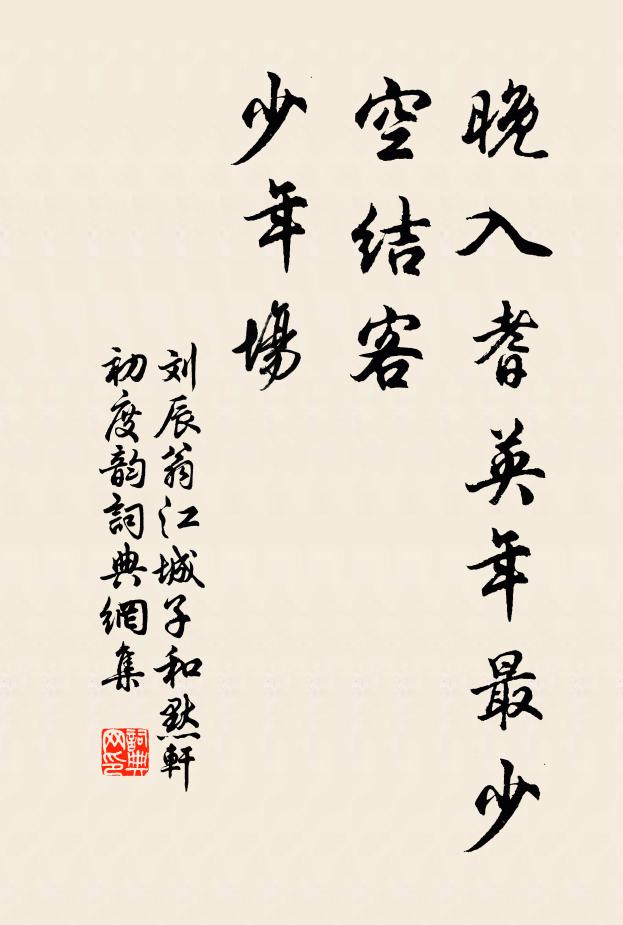 晚入耆英年最少
空结客
少年場
刘辰翁江城子和默軒
初度韵詞典網集
詞典
网印